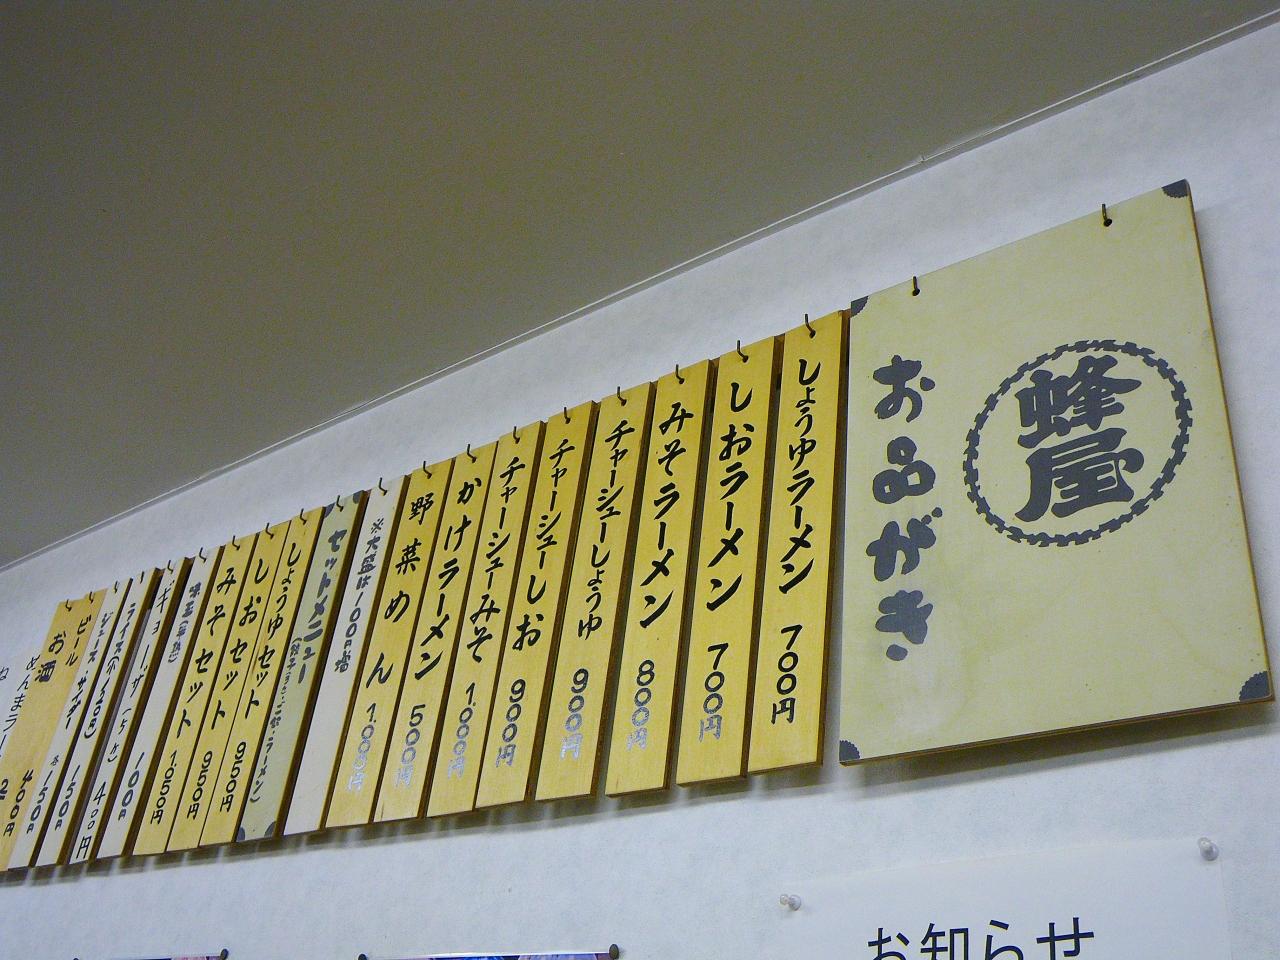 蜂屋
お品がき
しょうゆラーメン 700円
しおラーメン 700円
みそラーメン 800円
チャーシューしょうゆ 900円
チャーシューしお 900円
チャーシューみそ 1,000円
かけラーメン 500円
野菜めん 1,000円
※大盛は100円増
セットメニュー
しょうゆセット 950円
しおセット 950円
みそセット 1,050円
味玉(半熟) 100円
ギョーザ(5ヶ) 400円
ライス(小) 150円
ジュース 各150円
ビール
お酒 400円
めんま
お知らせ